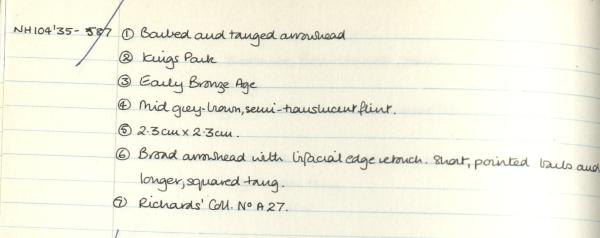 NH104'35-587 ① Barbed and tanged arrowhead
② Kings Park
③ Early Bronze Age
④ Mid grey-brown, semi-translucent flint.
⑤ 2.3cm x 2.3cm.
⑥ Broad arrowhead with bifacial edge retouch. Short, pointed barbs and
longer, squared tang.
⑦ Richards' Coll. No A27.